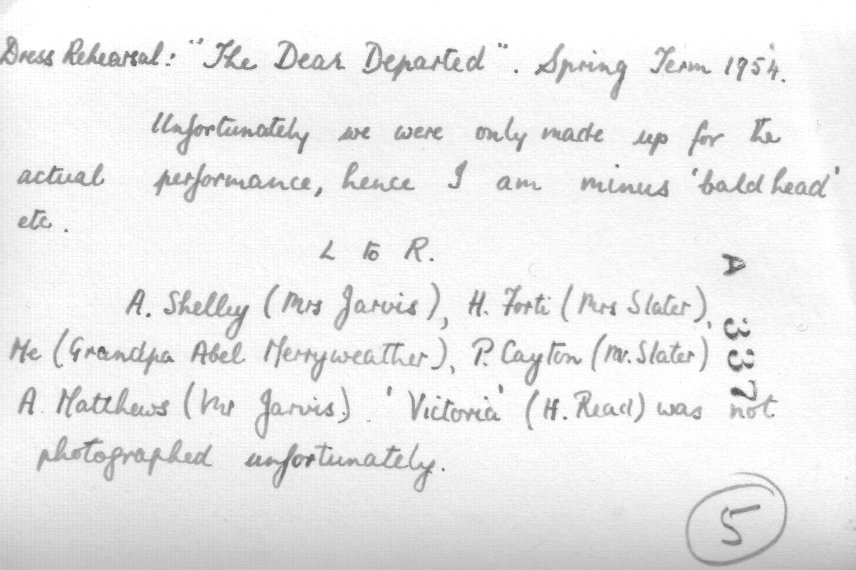 Dress Rehearsal: "The Dear Departed". Spring Term 1954.
Unfortunately we were only made up for the
actual performance, hence I am minus 'bald head'
etc.
L to R.
A. Shelley (Mrs Jarvis), H. Forti (Mrs Slater),
Me (Grandpa Abel Merryweather), P. Cayton (Mr. Slater)
A. Matthews (Mr Jarvis). 'Victoria' (H. Read) was not
photographed unfortunately.
A 337
5